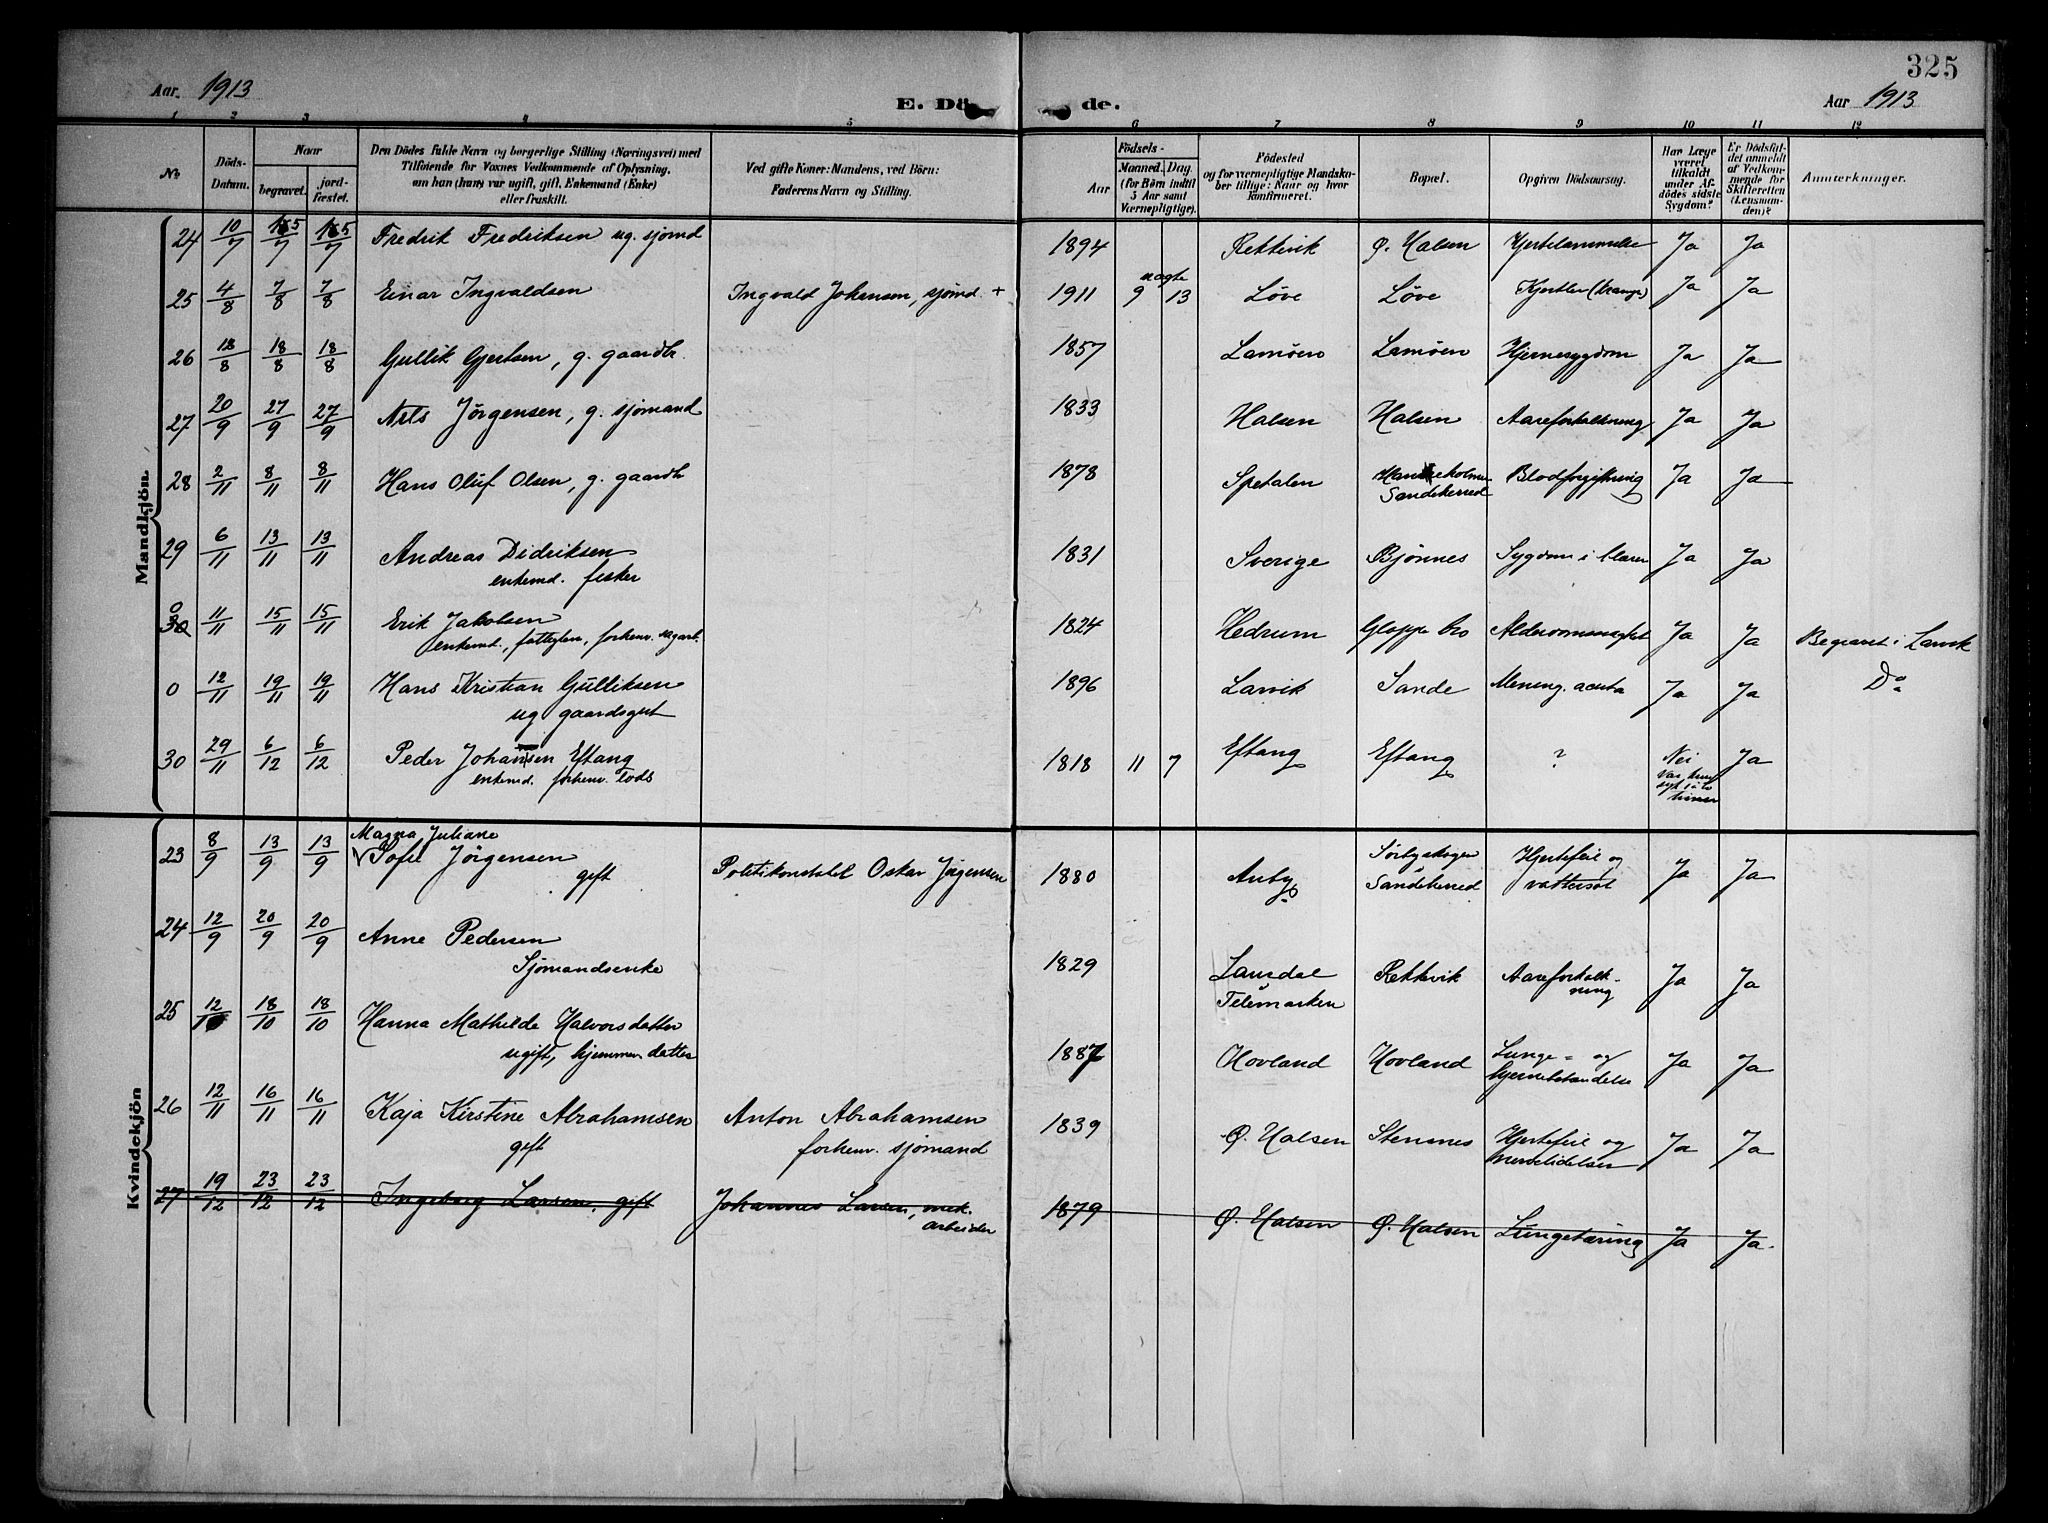 325
Aar 1913 E. Dö de. Aar 1913
1 2 3 4 5 6 7 8 9 10 11 12
No. Döds-Datum. Naar begravet. jordfæstet. Den Dödes fulde Navn og borgerlige Stilling (Næringsvei) med Tilföiende for Voxnes Vedkommende af Oplysning, om han (hun) var ugift, gift, Enkemand (Enke) eller fraskilt. Ved gifte Koner: Mandens, ved Börn: Faderens Navn og Stilling. Födsels- Aar Maaned. Dag. (for Börn indtil 5 Aar samt Værnepligtige). Födested og for værnepligtige Mandskaber tillige: Naar og hvor konfirmeret. Bopæl. Opgiven Dödsaarsag. Har Læge været tilkaldt under Afdödes sidste Sygdom? Er Dödsfaldet anmeldt af Vedkommende for Skifteretten (Lensmanden)? Anmærkninger.
Mandkjön.
24 10/7 15/7 15/7 Fredrik Fredriksen ug. sjømd 1894 Rekkevik Ø. Halsen Hjertelammelse Ja Ja
25 4/8 7/8 7/8 Einar Ingvaldsen Ingvald Johansen, sjømd. + 1911 9 13 Løve Løve Ja Ja
26 12/8 18/8 18/8 Gullik Gjertsen, g. gaardbr. 1857 Lamøen Lamøen Hjernesygdom Ja Ja
27 20/9 27/9 27/9 Nils Jörgensen, g. sjömand 1833 Halsen Halsen Aareforkalkning Ja Ja
28 2/11 8/11 8/11 Hans Oluf Olsen, g. gaardb 1878 Spetalen Sandeherred Blodforgiftning Ja Ja
29 6/11 13/11 13/11 Andreas Didriksen
enkemd. fisker 1831 Sverige Bjønnes Sygdom i blæren Ja Ja
0 11/11 15/11 15/11 Erik Jakobsen
enkemd., fattiglem, forhenv. 1824 Hedrum Gloppe bro Alderdomssvaghet Ja Ja Begravet i Larvik
0 12/11 19/11 19/11 Hans Kristian Gulliksen
ug gaardsgut 1896 Larvik Sande Mening. acuta Ja Ja Do
30 29/11 6/12 6/12 Peder Johansen Eftang
enkemd. forhenv. lods 1818 11 7 Eftang Eftang ? Nei Ja
Kvindekjön
23 8/9 13/9 13/9 Magna Juliane
Sofie Jörgensen
gift Politikonstabel Oskar Jörgensen 1880 Auby Sørbyskogen
Sandeherred Hjertefeil og
vattersot Ja Ja
24 12/9 20/9 20/9 Anne Pedersen
Sjömandsenke 1829 Laurdal
Telemarken Rekkevik Aareforkalk-
ning Ja Ja
25 12/10 18/10 18/10 Hanna Mathilde Halvorsdatter
ugift, hjemmev. datter 1887 Hovland Hovland Lunge- og
Ja Ja
26 12/11 16/11 16/11 Kaja Kirstine Abrahamsen
gift Anton Abrahamsen
forhenv. sjømand 1839 Ø. Halsen Stensnes Hjertefeil og
nervelidelser Ja Ja
27 19/12 23/12 23/12 Ingeborg Larsen, gift Johannes Larsen, mek.
arbeider 1879 Ø. Halsen Ø. Halsen Lungetæring Ja Ja.